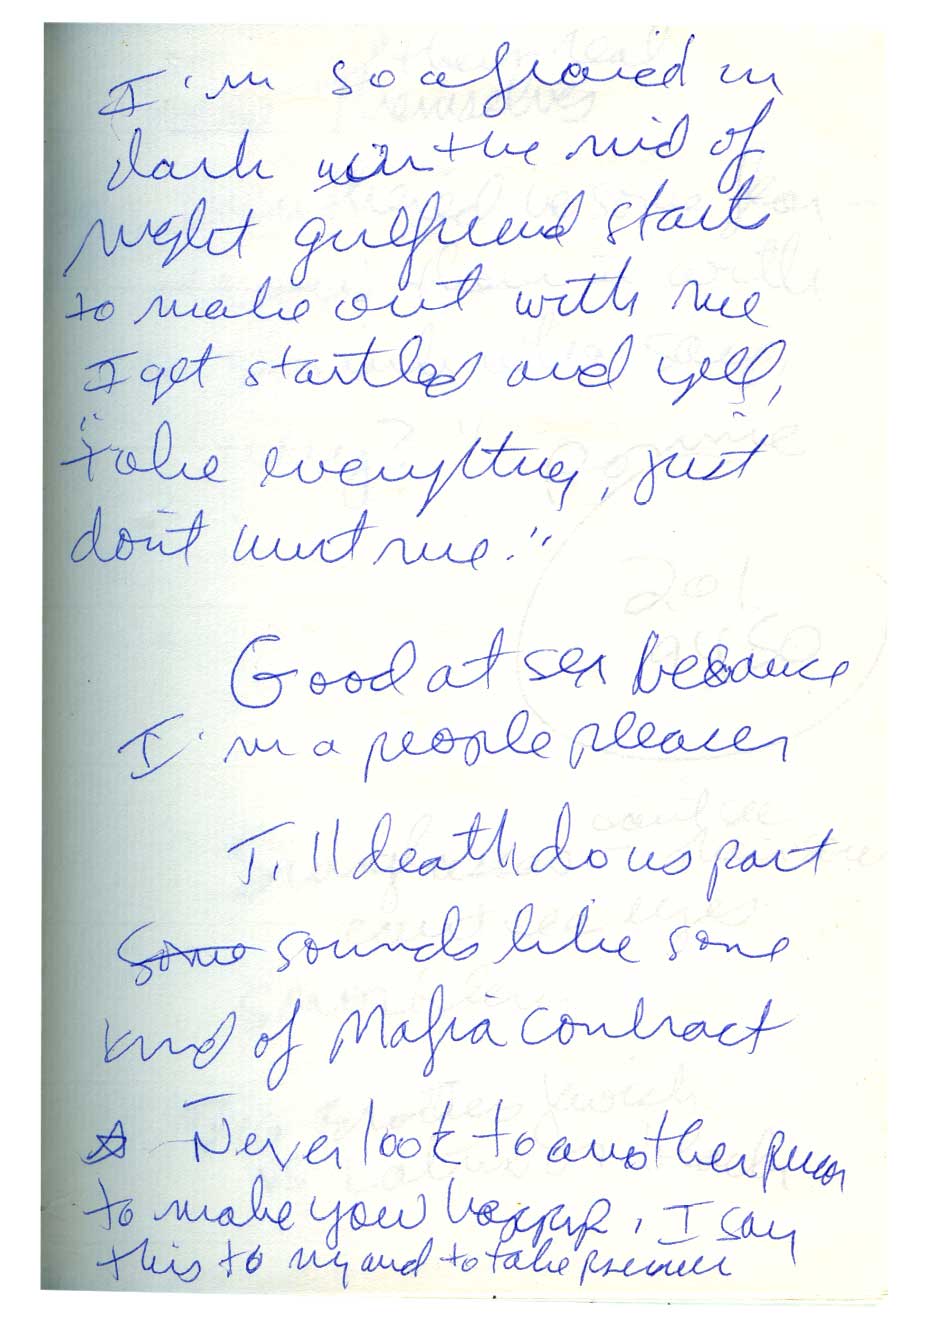 I'm so afraied in
dark in the mid of
night girlfriend starts
to make out with me
I get startled and yell,
"take everything, just
don't hurt me."
Good at sex because
I'm a people pleaser
Till death do us part
Some sounds like some
kind of Mafia contract
Never look to another person
to make you happy, I say
this to my and to take